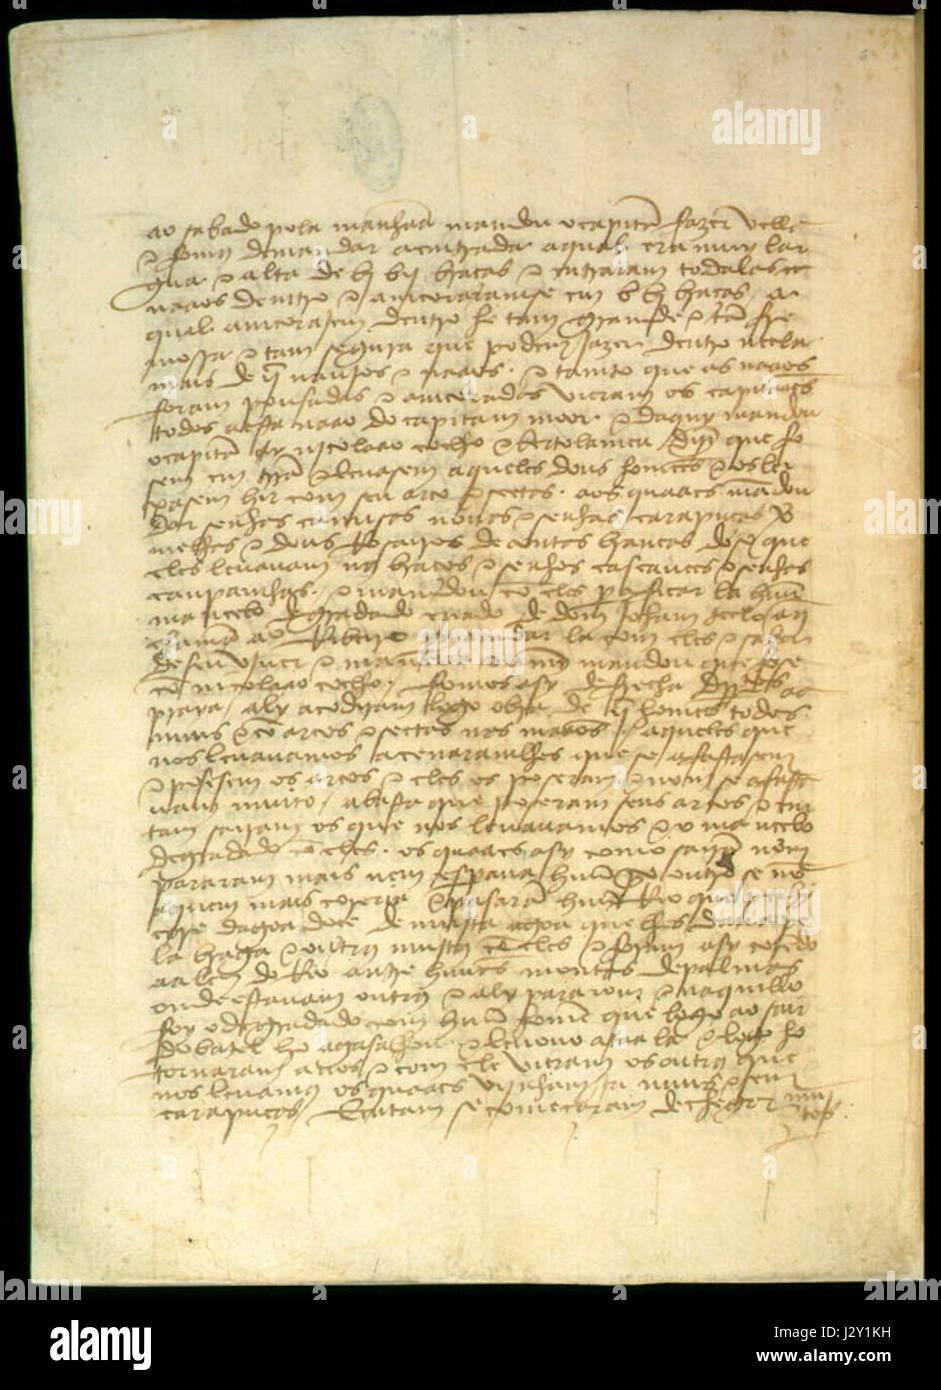 ao sabado pola manhaã mandou o capitã fazer vella
e fomos demandar a emtrada a qual era muy lar
gua e alta de bj bij braças e entraram todalas
naaos dentro e amcoraramse em b bj braças / a
qual amcorajem dentro he tam grande e tã fre
mossa e tam segura que podem jazer dentro neela
mais de ijᶜ naujos e naaos. e tamto que as naaos
foram pousadas e amcoradas vieram os capitaães
todos a esta naao do capitam moor. e daquy mandou
o capitã a njcolaao coelho e bertolameu dijz que fo
sem em trã e leuasem aqueles dous homeẽs e os lei
xasem hir com seu arco e seetas. aos quaaes mãdou
dar senhas camisas nouas e senhas carapuças ver
melhas e dous Rosairos de contas brancas doso que
eles leuauam nos braços e senhos cascauees e senhas
canpainhas. e mandou cõ eles pera ficar la huũ
mancebo degradado criado de dom Joham teelo a que
chamã ao Ribeiro pera amdar la com eles e saber
de seu viuer e maneira e a mym mandou que fose
cõ njcolaao coelho / fomos asy de frecha direitos aa
praya / aly acodiram logo obra de ijᶜ homeẽs todos
nuus e cõ arcos e seetas nas maãos. aqueles que
nos leuauamos acenaramlhes que se afastasem
e posesem os arcos e eles os poseram e nom se afasta
uam muito / abasta que poseram seus arcos e em
tam sairam os que nos leuauamos e o mancebo
degradado cõ eles. os quaaes asy como sairã nom
pararam mais nem esperaua huũ por outro se nõ
a quem mais coreria e pasarã huũ Rio que per hy
core dagoa doce de muita agoa que lhes daua pela
braga e outros mujtos cõ eles e foram asy corẽdo
aalem do Rio antre huũas moutas de palmas
onde estauam outros e aly pararom e naquilo
foy o degradado com huũ homẽ que logo ao sair
do batel ho agasalhou e leuouo ataa la e logo ho
tornaram a nos e com ele vieram os outros que
nos leuamos os quaaes vijnham ja nuus e sem
carapuças / E entam se começaram de chegar mui
tos
alamy
Image ID: J2Y1KH
www.alamy.com